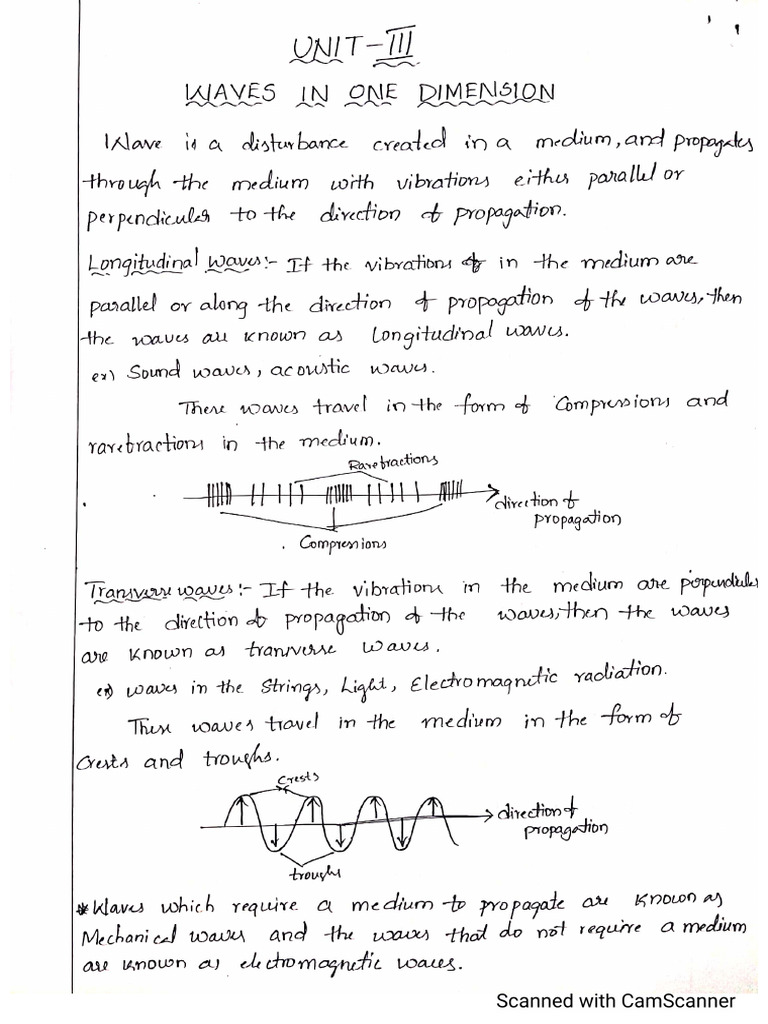 UNIT-III
WAVES IN ONE DIMENSION
Wave is a disturbance created in a medium, and propagates
through the medium with vibrations either parallel or
perpendicular to the direction of propagation.
Longitudinal waves:- If the vibrations of in the medium are
parallel or along the direction of propagation of the waves, then
the waves are known as Longitudinal waves.
ex) Sound waves, acoustic waves.
These waves travel in the form of Compressions and
rarefractions in the medium.
Rarefractions
direction of
propagation
Compressions
Transverse waves:- If the vibrations in the medium are perpendicular
to the direction of propagation of the waves, then the waves
are known as transverse waves.
ex) waves in the Strings, Light, Electromagnetic radiation.
These waves travel in the medium in the form of
Crests and troughs.
Crests
direction of
propagation
troughs
*Waves which require a medium to propagate are known as
Mechanical waves and the waves that do not require a medium
are known as electromagnetic waves.
Scanned with CamScanner